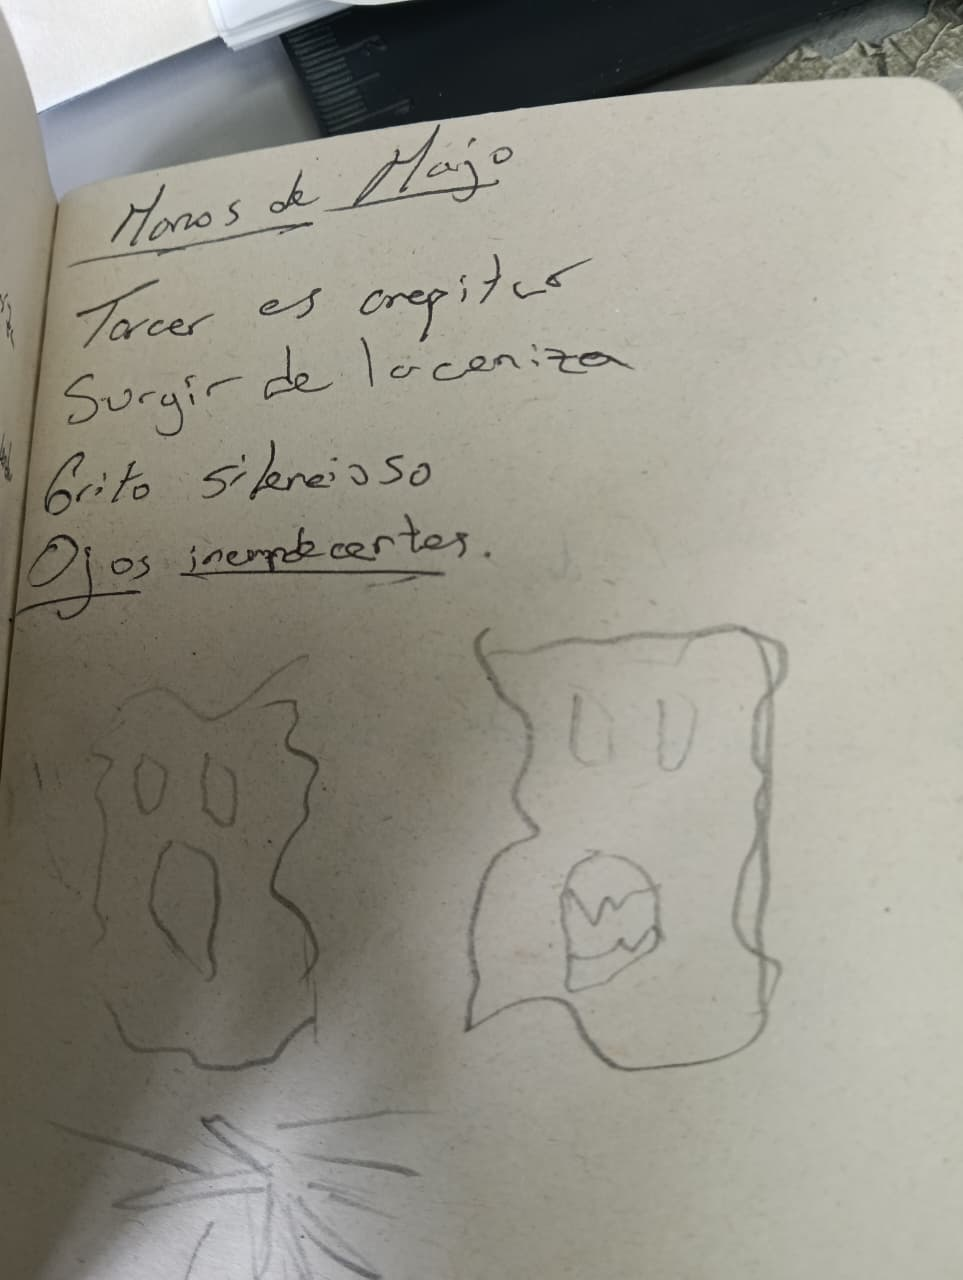 Monos de Majo
Torcer es crepitar
Surgir de la ceniza
Grito silencioso
Ojos